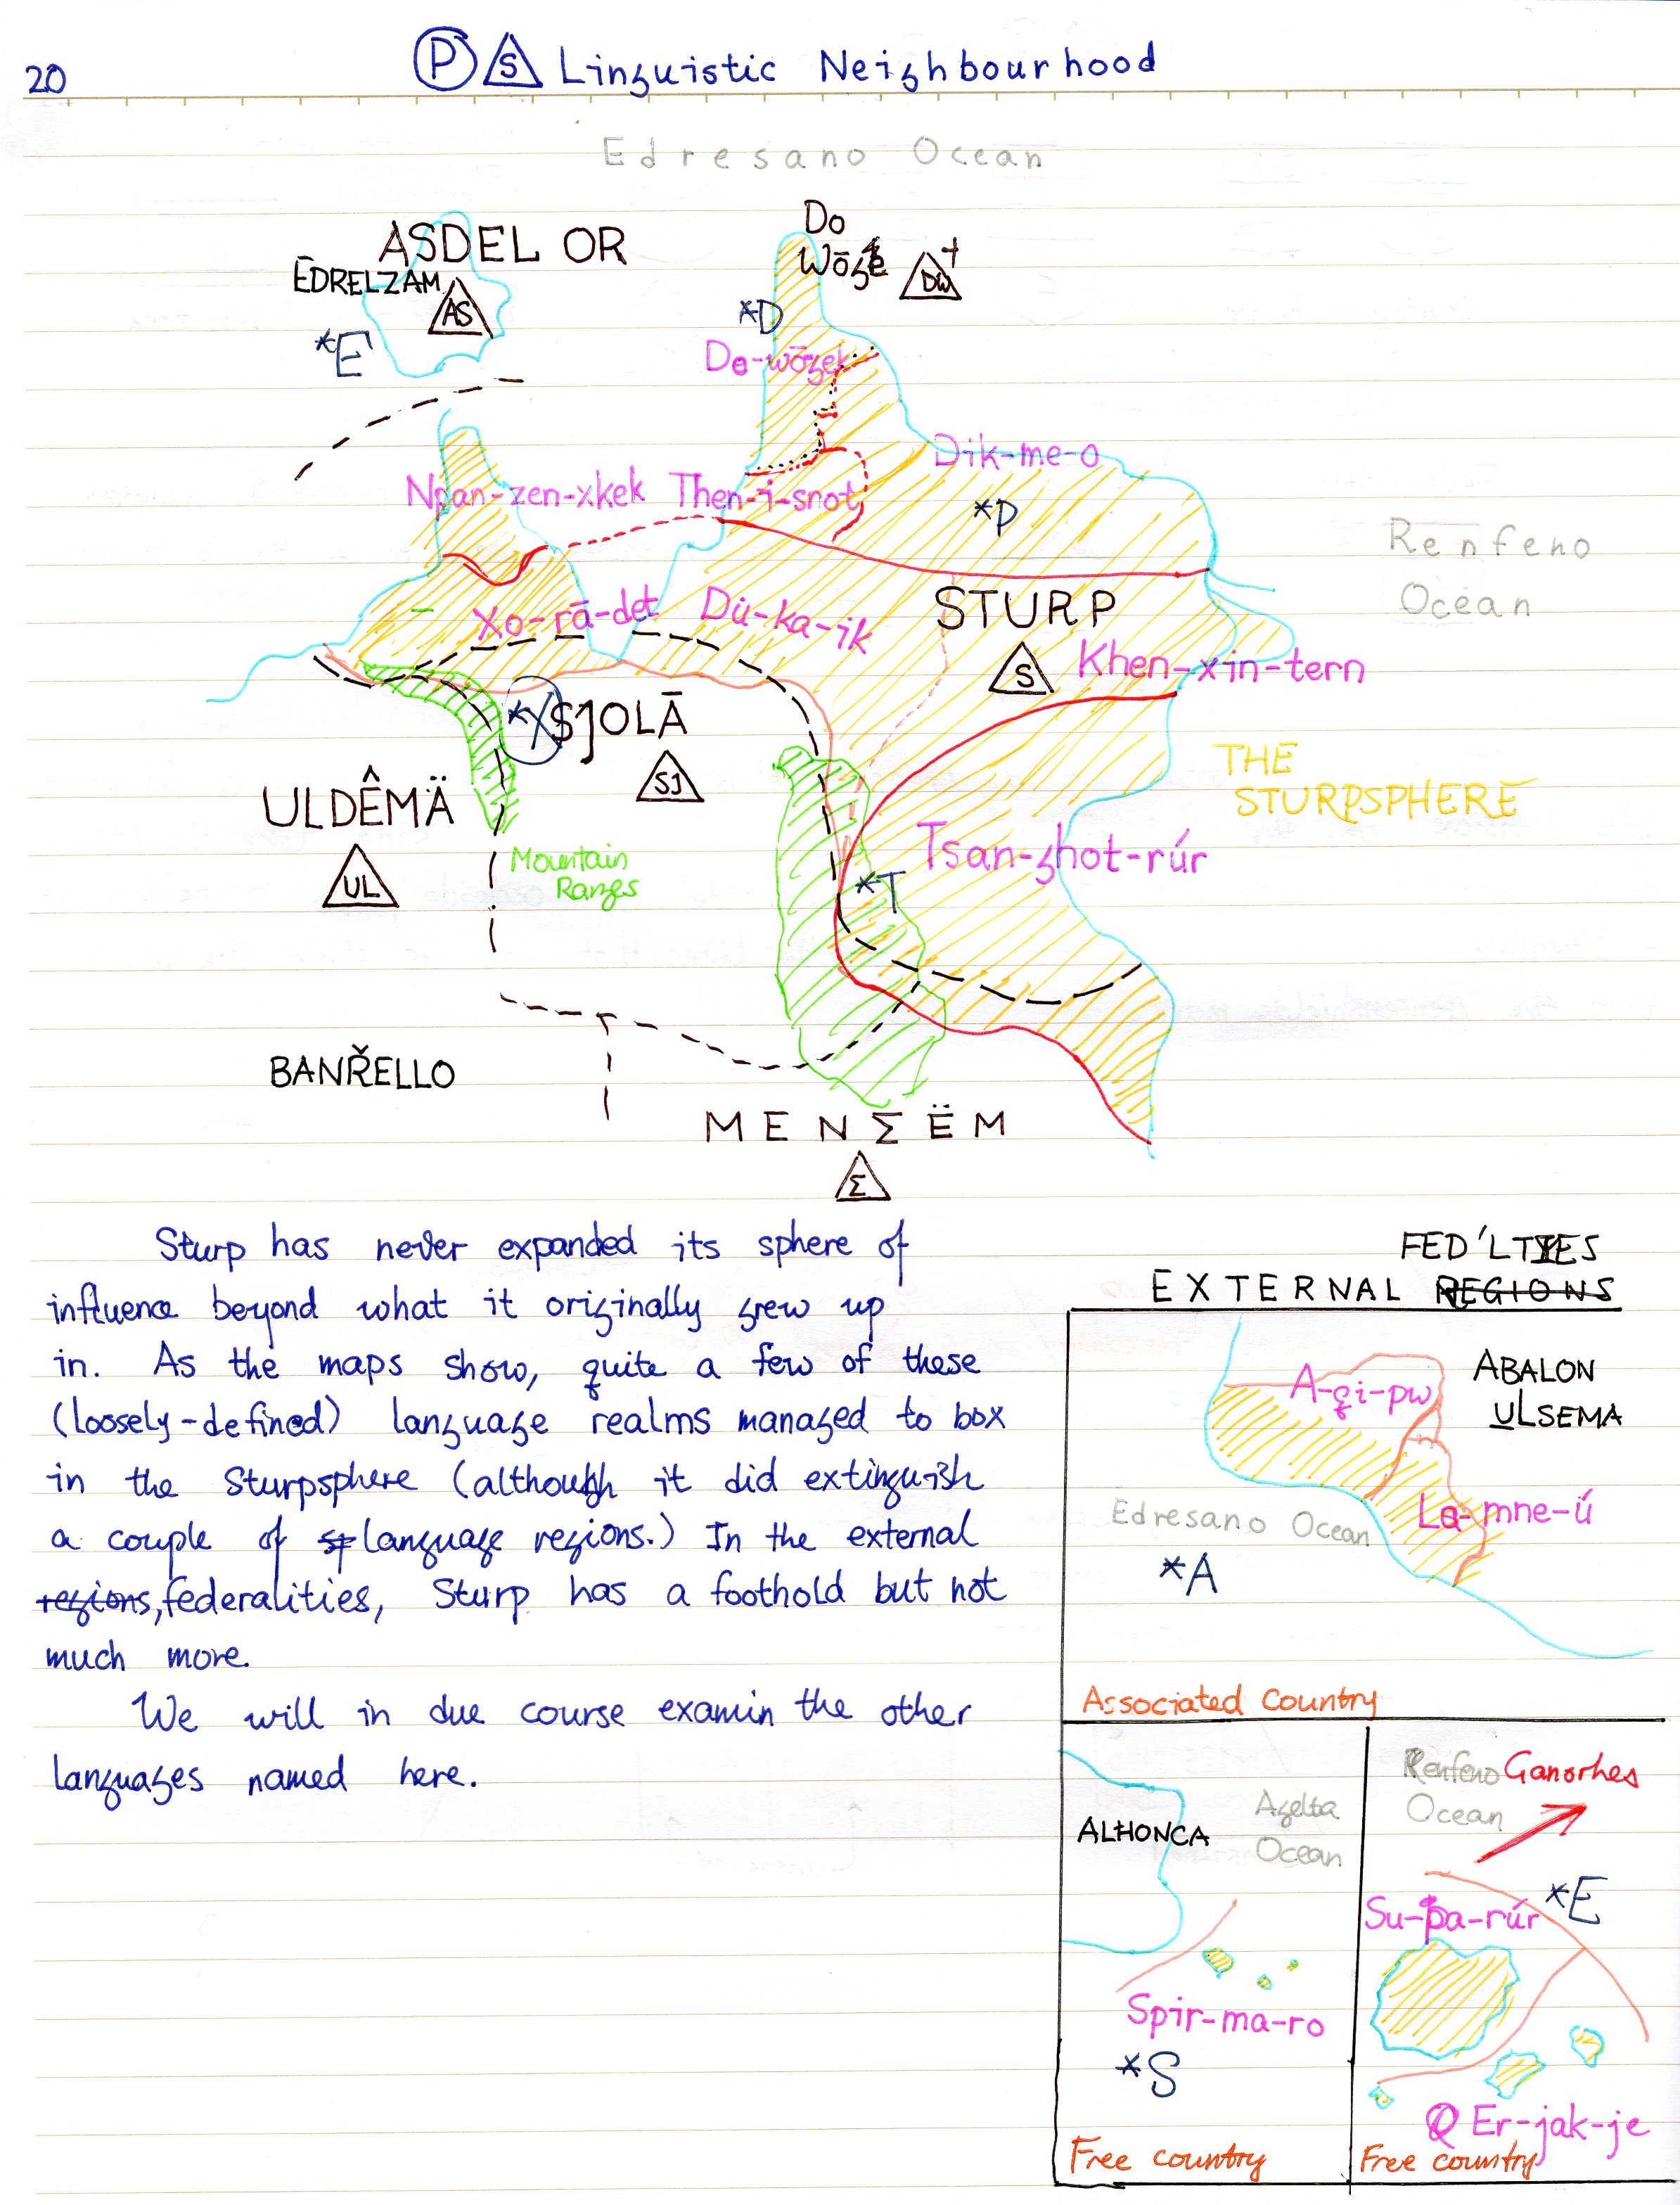 20
P S Linguistic Neighbourhood
Edresano Ocean
ASDEL OR
EDRELZAM
AS
*E
Do
DW+
*D
Do-wōgek
Dik-me-o
*P
Npan-zen-xkek
Then-i-snot
Renfeno
Ocean
Xo-rā-det
Dü-ka-ik
STURP
S
Khen-xin-tern
*X
SJOLĀ
SJ
ULDÊMÄ
UL
THE
STURPSPHERE
Mountain
Ranges
Tsan-ghot-rúr
*T
BANŘELLO
MENΣËM
Σ
Sturp has never expanded its sphere of
influence beyond what it originally grew up
in. As the maps show, quite a few of these
(loosely-defined) language realms managed to box
in the Sturpsphere (although it did extinguish
a couple of sp language regions.) In the external
regions, federalities, Sturp has a foothold but not
much more.
We will in due course examin the other
languages named here.
FED'LTIES
EXTERNAL REGIONS
ABALON
ULSEMA
La-mne-ú
Edresano Ocean
*A
Associated Country
ALHONCA
Agelta
Ocean
Spir-ma-ro
*S
Free country
Renfeno
Ocean
Ganorhes
*E
Su-pa-rúr
Er-jak-je
Free country